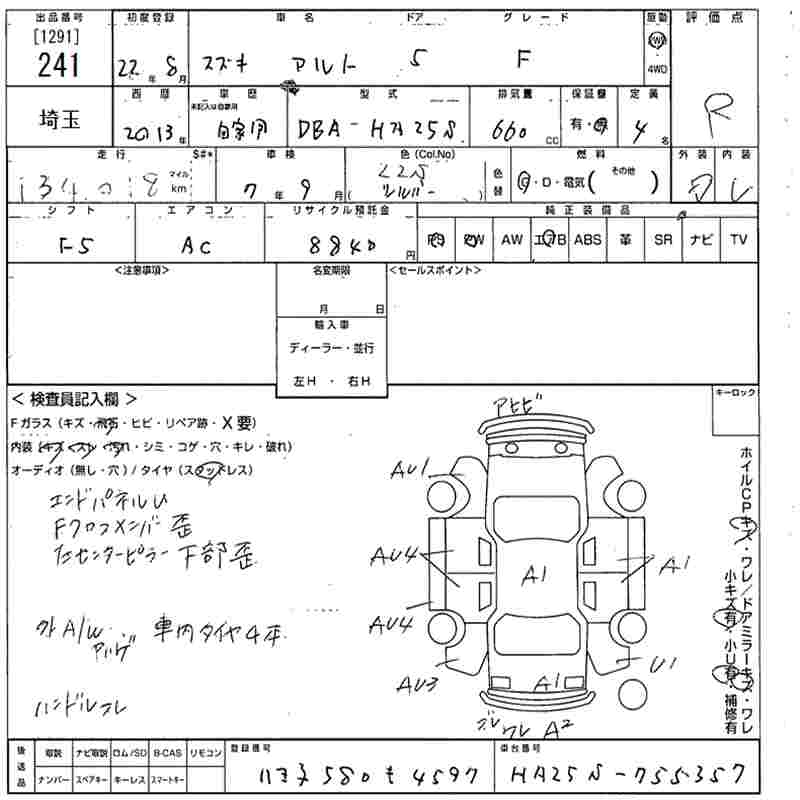 出品番号 初度登録 車名 ドア グレード 駆動 評価点
[1291]
241 22年8月 スズキ アルト 5 F 2WD 4WD R
埼玉 西暦 車歴 型式 排気量 保証書 定員
未記入は自家用
2013年 自家用 DBA-HA25S 660cc 有・無 4名
走行 S#* 車検 色(Col.No) 色替 燃料 外装 内装
134,018 マイル km 7年9月 (シルバー) Z2S G・D・電気(その他)
シフト エアコン リサイクル預託金 純正装備品
F5 AC 8840円 PS PW AW エアB ABS 革 SR ナビ TV
<注意事項> 名変期限 <セールスポイント>
月 日
輸入車
ディーラー・並行
左H ・ 右H
<検査員記入欄> キーロック
Fガラス(キズ・飛石・ヒビ・リペア跡・X要)
内装(キズ・スレ・汚れ・シミ・コゲ・穴・キレ・破れ)
オーディオ(無し・穴)/タイヤ(スタッドレス)
エンドパネルU
Fクロスメンバ歪
左センターピラー下部歪
外A/W 車内タイヤ4本
ハンドルスレ
アヒビ
AU1
AU4 A1 A1
AU4
AU3 A1 U1
ワレ A2
ホイルCPキズ・ワレ/ドアミラーキズ・ワレ
小キズ有・小U有・補修有
後送品 取説 ナビ取説 ロム/SD B-CAS リモコン 登録番号 車台番号
ナンバー スペアキー キーレス スマートキー 580 も 4597 HA25S-755357